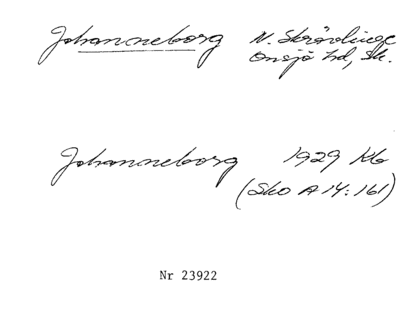 Johanneborg N. Skrävlinge
Onsjö hd, Sk.
Johanneborg 1929 Kb
(Sko A 14:161)
Nr 23922